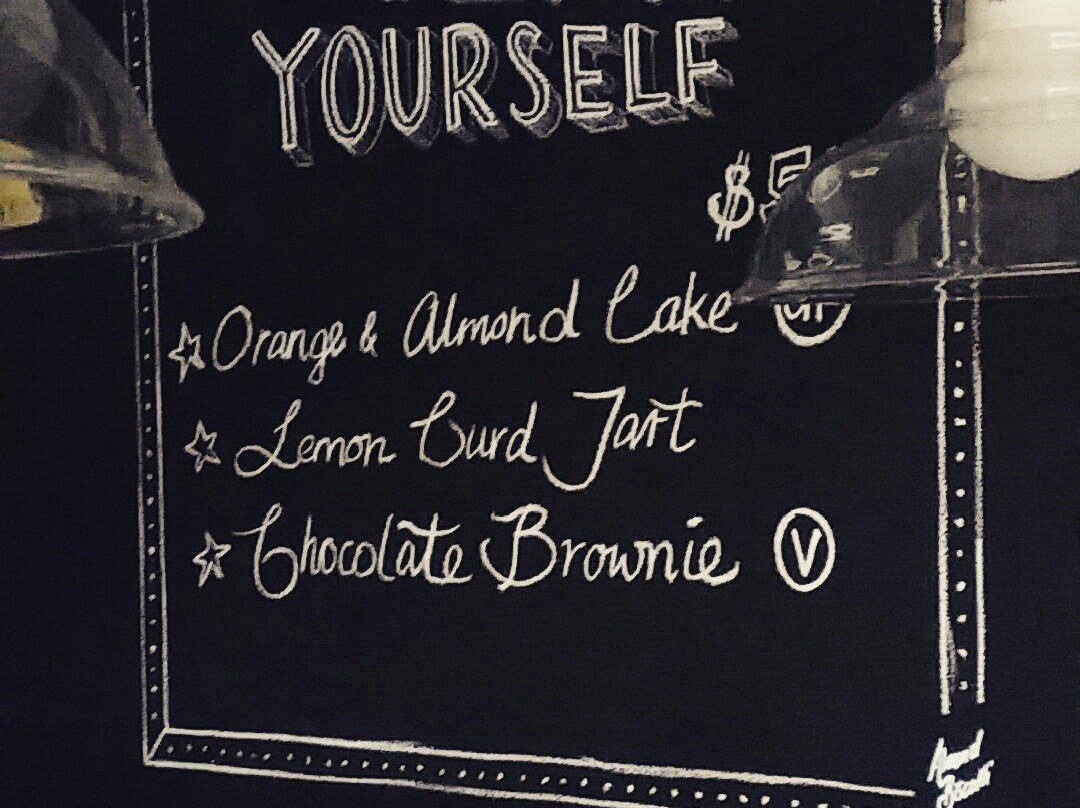 YOURSELF
$5
☆ Orange & Almond Cake GF
☆ Lemon Curd Tart
☆ Chocolate Brownie V